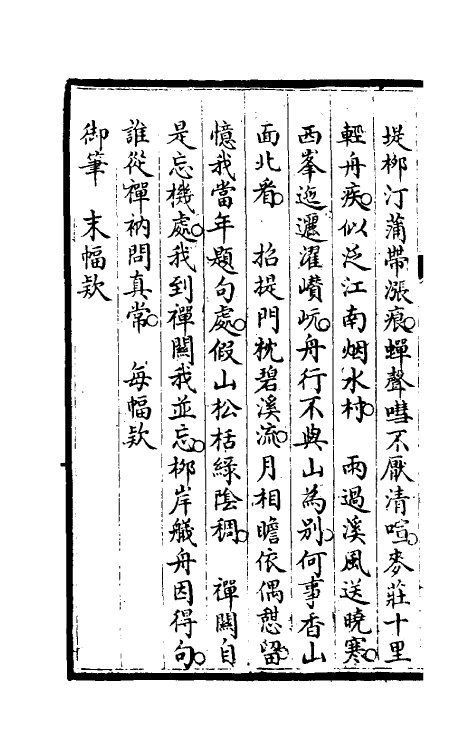 堤柳汀蒲帶漲痕蟬聲嘒不厭清喧麥莊十里
輕舟疾似泛江南烟水村　雨過溪風送曉寒
西峯迤邐濯巑岏舟行不與山為別何事香山
面北看　招提門枕碧溪流月相瞻依偶憇留
憶我當年題句處假山松栝綠陰稠　禪關自
是忘機處我到禪關我並忘柳岸艤舟因得句
誰從禪衲問真常　每幅款
御筆　末幅款